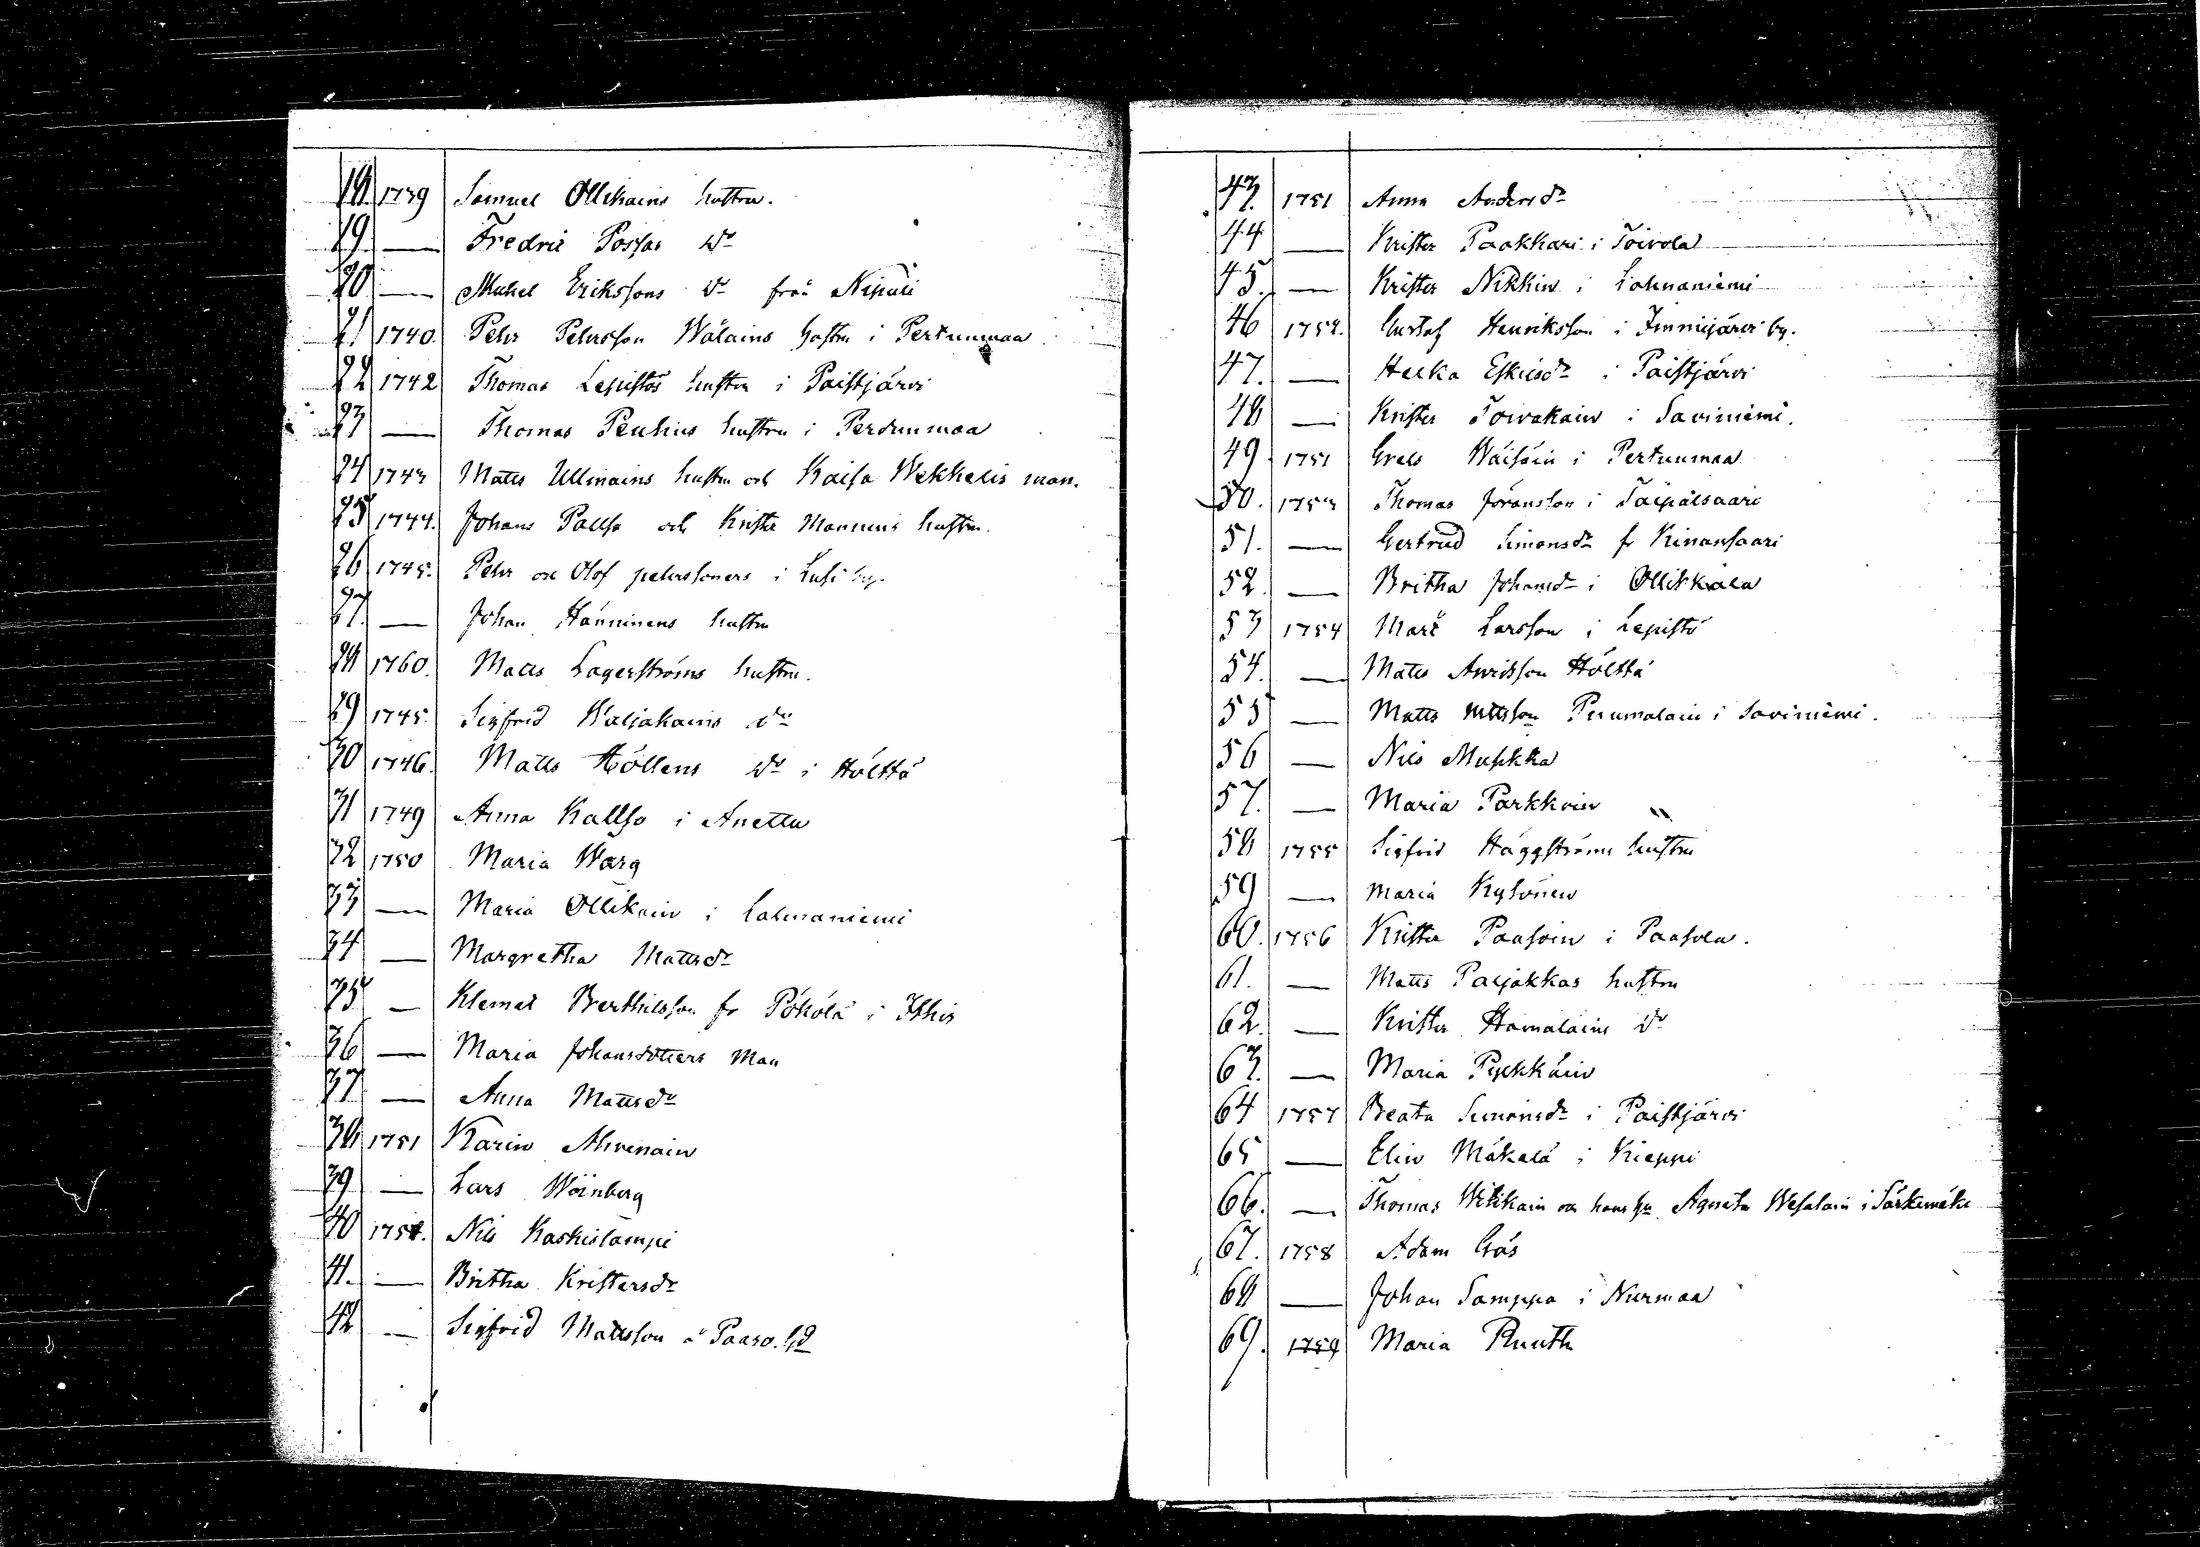 18. 1739 Samuel Ollikains hustru.
19. — Fredric Possas Dr
20 — Mickel Erikssons Dr från Nipuli
21 1740. Pehr Pehrsson Wälains hustru i Pertunmaa
22 1742 Thomas Lepistös hustru i Paistjärvi
23 — Thomas Penhius hustru i Perdunmaa
24 1743 Matts Ullmains hustru och Kaisa Wekkelis man.
25 1744. Johans Pallso och Krister Mannins hustru.
26 1745. Pehr och Olof pehrssoners i Lusi by.
27. — Johan Hänninens hustru
28 1760. Matts Lagerströms hustru.
29 1745 Sigfrid Waljakains Dr
30 1746. Matts Höllens Dr i Hölttä
31 1749 Anna Kallso i Anettu
32 1750 Maria Warg
33 — Maria Ollikain i Lahnaniemi
34 — Margretha Mattsdr
35 — Klemet Berthilsson fr Pökölä i Itthis
36 — Maria Johansdotters Man
37 — Anna Mattsdr
38 1751 Karin Ahvenain
39 — Lars Wöinberg
40 1751. Nils Kaskislampi
41. — Britha Kristersdr
42 — Sigfrid Mattsson å Paaso. Gd
43. 1751 Anna Andersdr
44 — Krister Paakkari i Toivola
45. — Krister Nikkin i Lahnaniemi
46 1752. Gustaf Henriksson i Imnijärvi by.
47. — Helka Eskilsdr i Paistjärvi
48 — Krister Toivakain i Saviniemi.
49 1751 Grels Wäisäin i Pertunmaa
50. 1753 Thomas Jöransson i Taipalsaari
51. — Gertrud Simonsdr fr Kinansaari
52. — Britha Johansdr i Ollikkala
53 1754 Mart Larsson i Lepistö
54. — Matts Anrisson Hölttä
55 — Matts Mattsson Perumalain i Saviniemi.
56 — Nils Muhkka
57. — Maria Parkkoin
58 1755 Sigfrid Häggströms hustru
59 — Maria Kylönen
60. 1756 Krister Paasoin i Paasola.
61. — Matts Paljakkas hustru
62. — Krister Hämäläins Dr
63. — Maria Pykkäin
64 1757 Beata Simonsdr i Paistjärvi
65 — Elin Mäkelä i Kieppi
66. — Thomas Wikkain och hans hu Agneta Wesalain i Särkemäki
67. 1758 Adam Gräs
68 — Johan Samppa i Nurmaa
69. 1759 Maria Ruuth